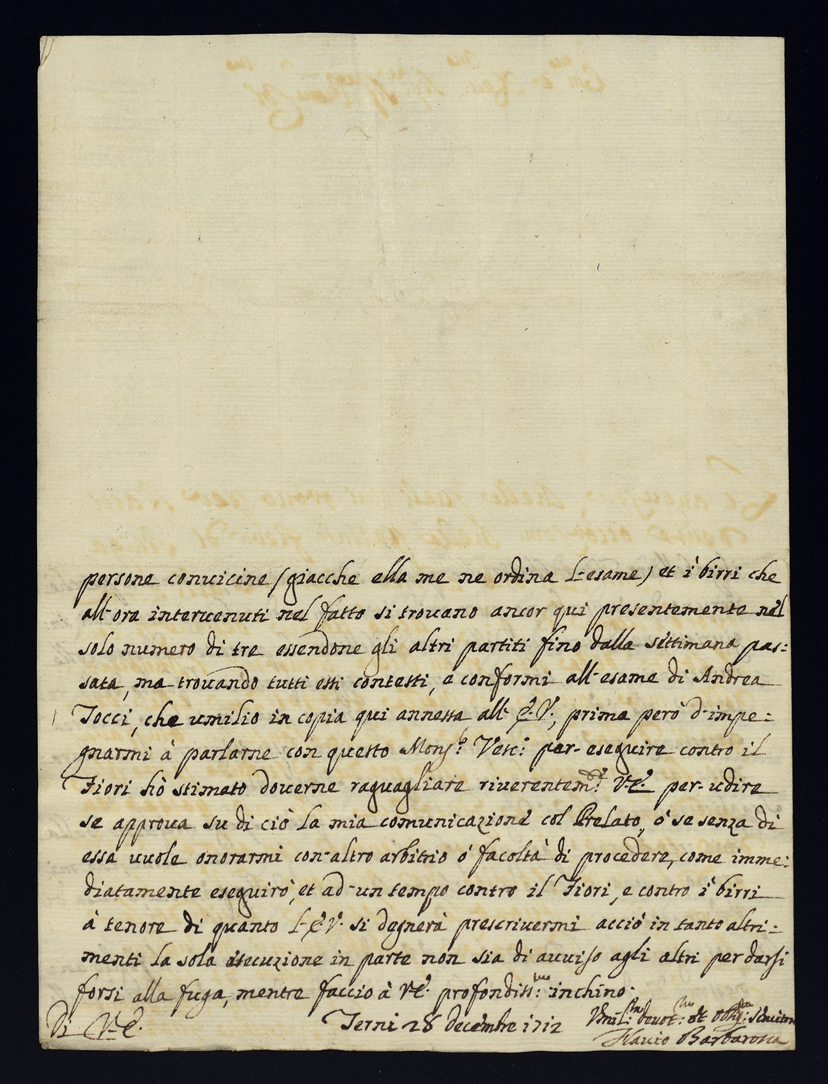 persone convicine (giacche ella me ne ordina l'esame) et i birri che
all'ora intervenuti nel fatto si trovano ancor qui presentemente nel
solo numero di tre essendone gli altri partiti fino dalla settimana pas=
sata, ma trovando tutti essi contesti, e conformi all'esame di Andrea
Tocci, che umilio in copia qui annessa all' E.V., prima però d'impe=
gnarmi à parlarne con questo Mons.e Vesc.o per eseguire contro il
Fiori hò stimato doverne raguagliare riverentem.te V.E. per udire
se approva su di ciò la mia comunicazione col Prelato, ò se senza di
essa vuole onorarmi con altro arbitrio ò facoltà di procedere, come imme=
diatamente eseguirò, et ad un tempo contro il Fiori, e contro i birri
à tenore di quanto l'E.V. si degnerà prescrivermi acciò in tanto altri=
menti la sola esecuzione in parte non sia di avviso agli altri per darsi
forsi alla fuga, mentre faccio à V.E. profondiss.mo inchino.
Di V.E. Terni 28 decembre 1712 Umil.mo devot.mo et obblig.mo servitore
Flavio Barbarossa